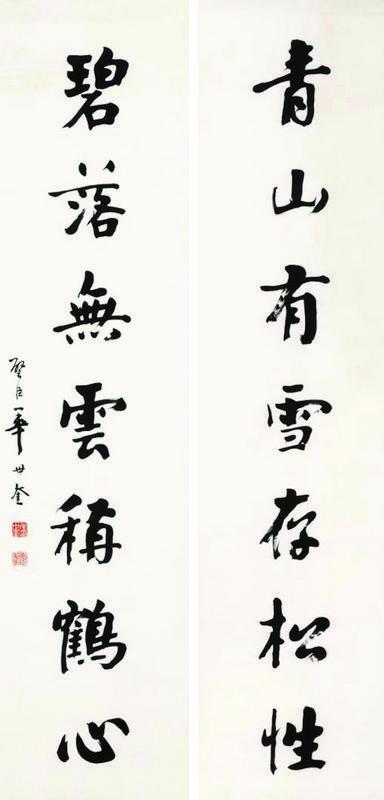 青山有雪存松性
碧落無雲稱鶴心
璧臣華世奎